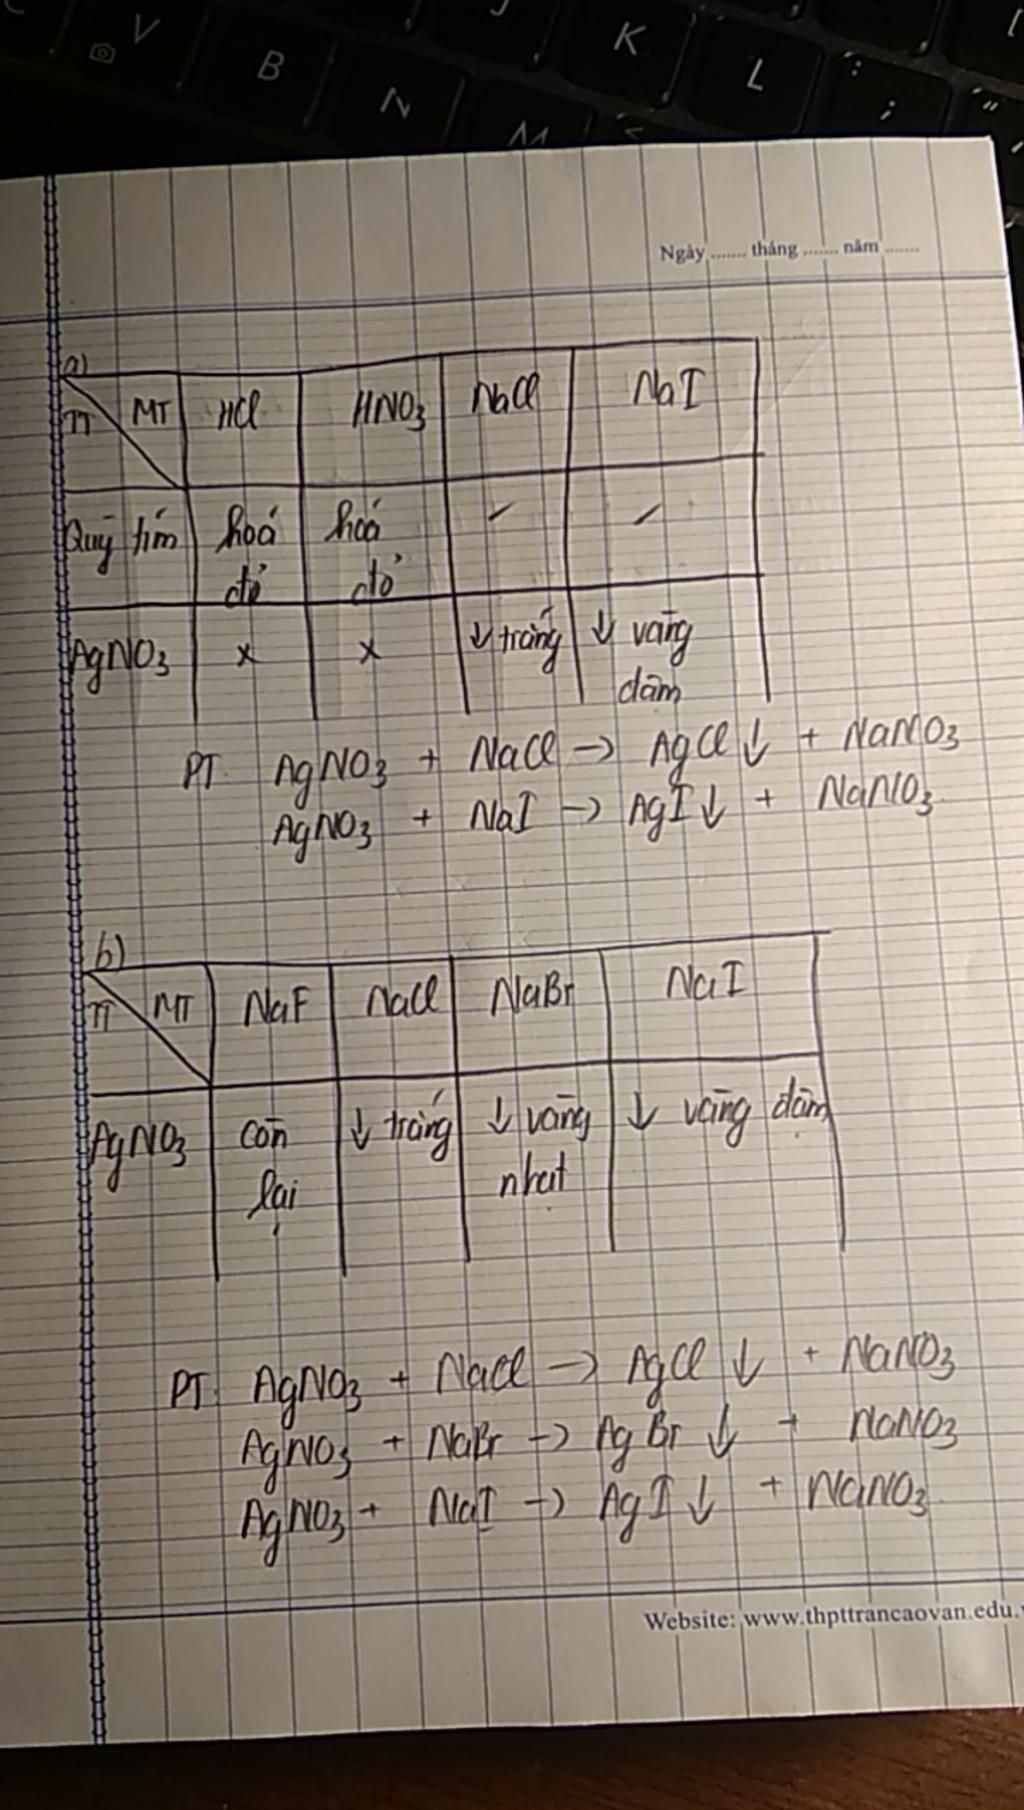 C V B N M J K L : ; "
Ngày ....... tháng ....... năm .......
a)
TT MT HCl HNO3 NaCl NaI
Quỳ tím hoá đỏ hoá đỏ - -
AgNO3 x x ↓ trắng ↓ vàng đậm
PT: AgNO3 + NaCl → AgCl ↓ + NaNO3
AgNO3 + NaI → AgI ↓ + NaNO3
b)
TT MT NaF NaCl NaBr NaI
AgNO3 còn lại ↓ trắng ↓ vàng nhạt ↓ vàng đậm
PT: AgNO3 + NaCl → AgCl ↓ + NaNO3
AgNO3 + NaBr → AgBr ↓ + NaNO3
AgNO3 + NaI → AgI ↓ + NaNO3
Website: www.thpttrancaovan.edu.